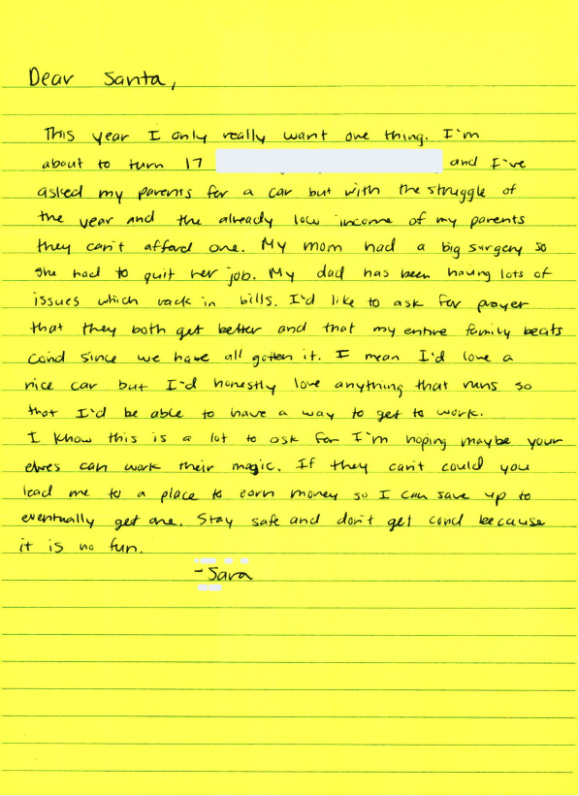 Dear Santa,
This year I only really want one thing. I'm
about to turn 17 and I've
asked my parents for a car but with the struggle of
the year and the already low income of my parents
they can't afford one. My mom had a big surgery so
she had to quit her job. My dad has been having lots of
issues which rack in bills. I'd like to ask for prayer
that they both get better and that my entire family beats
covid since we have all gotten it. I mean I'd love a
nice car but I'd honestly love anything that runs so
that I'd be able to have a way to get to work.
I know this is a lot to ask for I'm hoping maybe your
elves can work their magic. If they can't could you
lead me to a place to earn money so I can save up to
eventually get one. Stay safe and don't get covid because
it is no fun.
-Sara